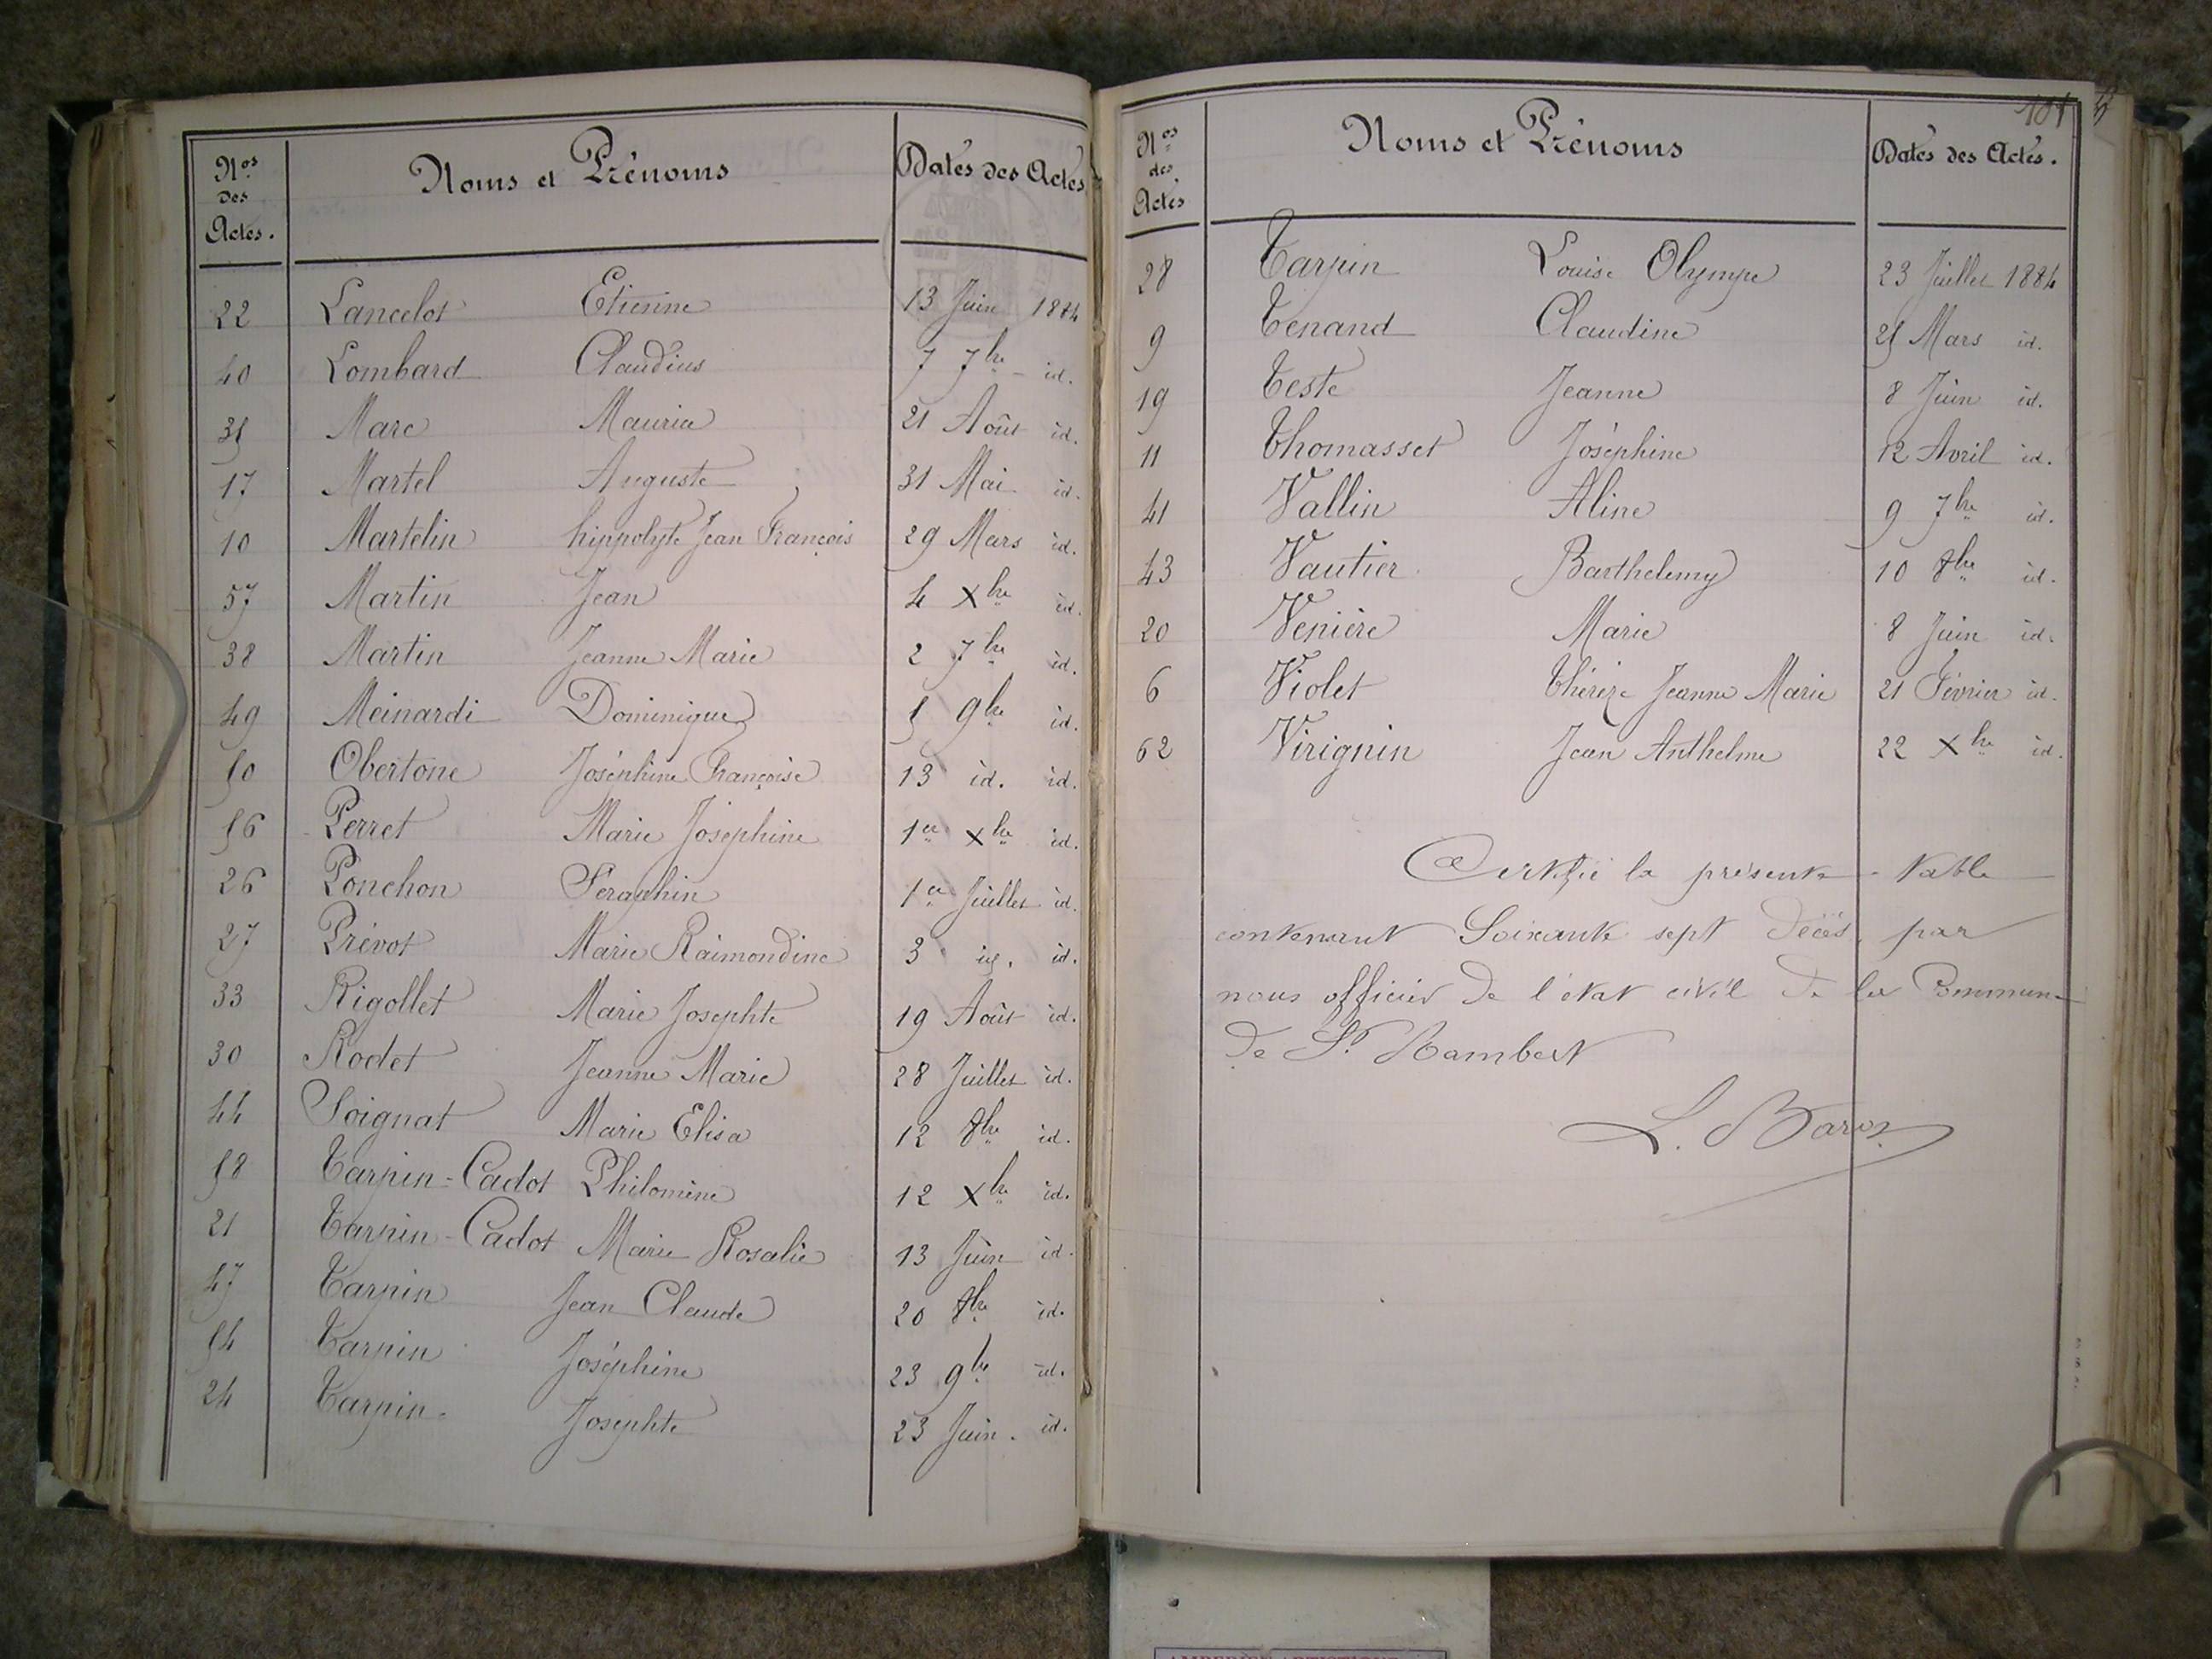 Nos des Actes. Noms et Prénoms Dates des Actes
22 Lancelot Etienne 13 Juin 1884
40 Lombard Claudius 7 7bre id.
35 Marc Maurice 21 Août id.
17 Martel Auguste 31 Mai id.
10 Martelin hippolyte Jean François 29 Mars id.
57 Martin Jean 4 Xbre id.
38 Martin Jeanne Marie 2 7bre id.
49 Meinardi Dominique 5 9bre id.
50 Obertone Joséphine Françoise 13 id. id.
56 Perret Marie Joséphine 1er Xbre id.
26 Ponchon Séraphin 1er Juillet id.
27 Prévot Marie Raimondine 3 id. id.
33 Rigollet Marie Josephte 19 Août id.
30 Rodet Jeanne Marie 28 Juillet id.
44 Soignat Marie Elisa 12 8bre id.
58 Tarpin-Cadot Philomène 12 Xbre id.
21 Tarpin-Cadot Marie Rosalie 13 Juin id.
47 Tarpin Jean Claude 20 8bre id.
54 Tarpin Joséphine 23 9bre id.
24 Tarpin Josephte 23 Juin. id.
Nos des Actes Noms et Prénoms Dates des Actes.
28 Tarpin Louise Olympe 23 Juillet 1884
9 Tenand Claudine 25 Mars id.
19 Teste Jeanne 8 Juin id.
11 Thomasset Joséphine 12 Avril id.
41 Vallin Aline 9 7bre id.
43 Vautier Barthelemy 10 8bre id.
20 Venière Marie 8 Juin id.
6 Violet Thérèze Jeanne Marie 21 Février id.
62 Virignin Jean Anthelme 22 Xbre id.
Certifié la présente table
contenant Soixante sept décès, par
nous officier de l'état civil de la Commune
de St Rambert